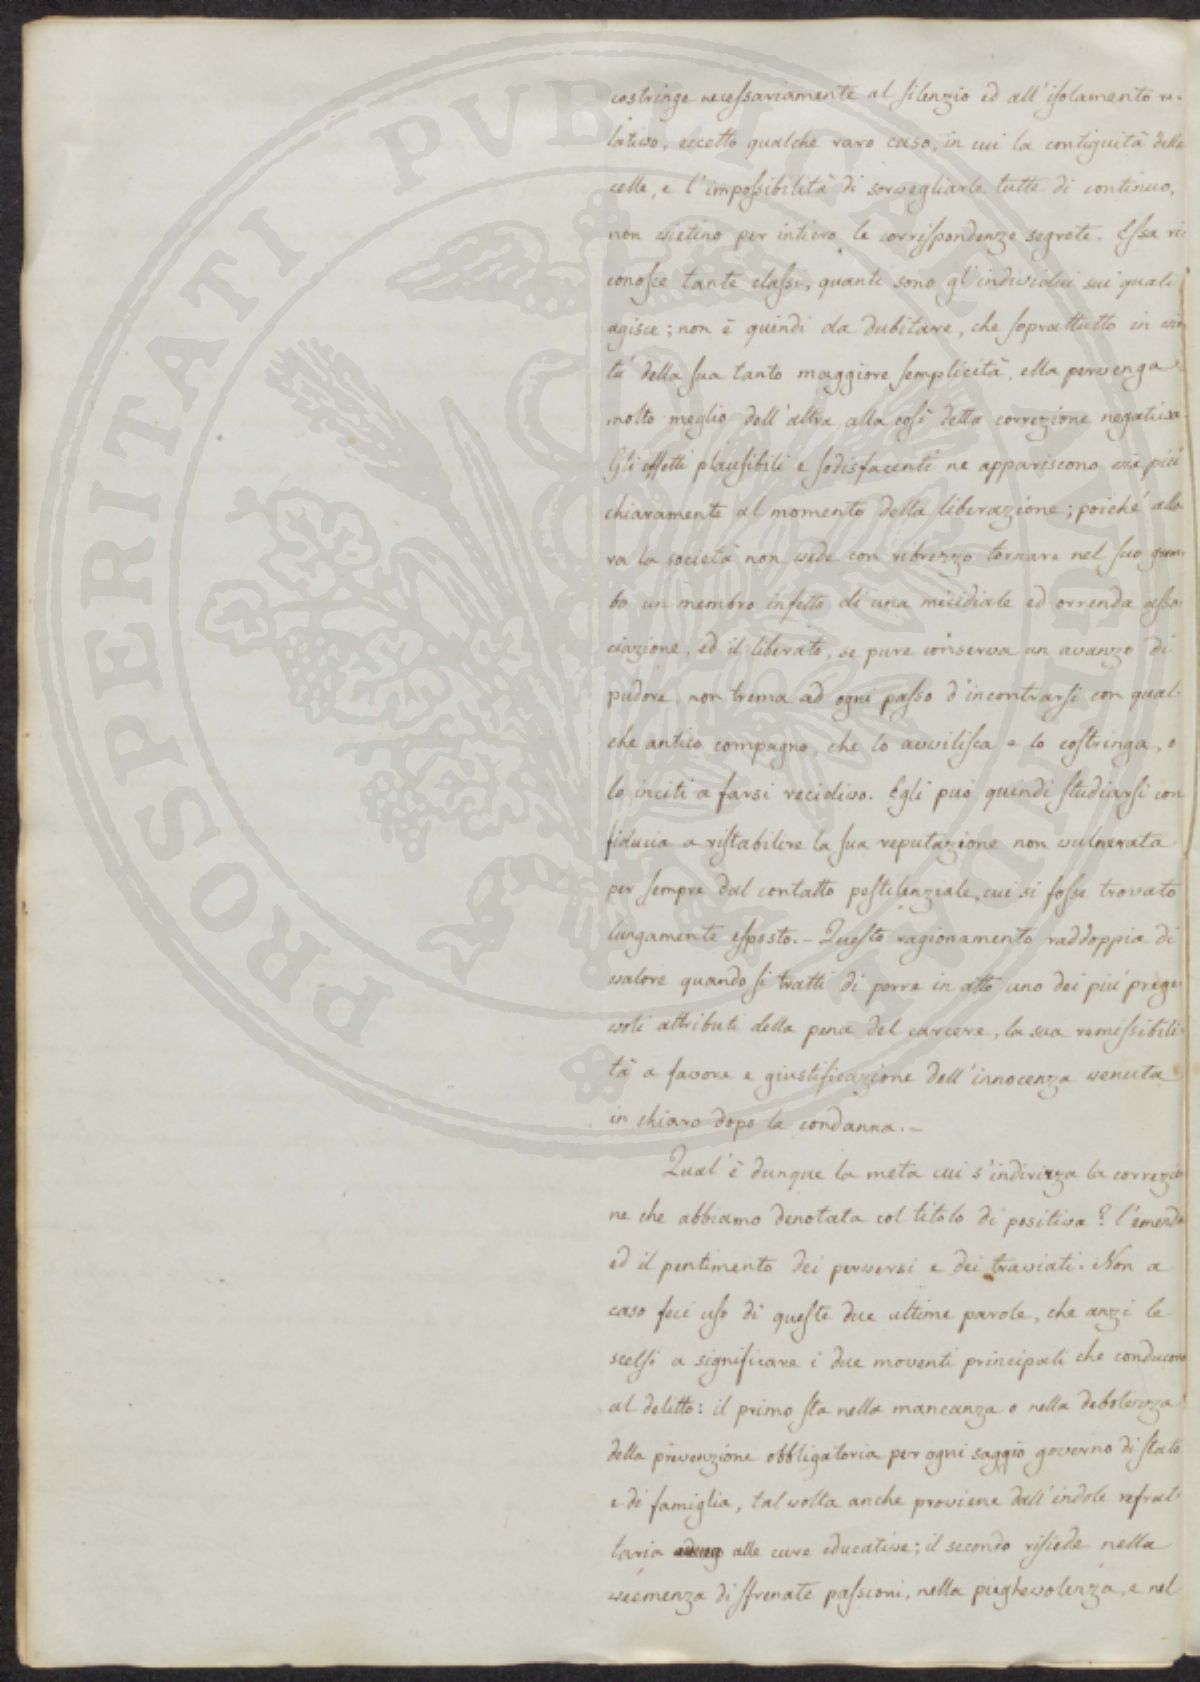 PROSPERITATI PUBLICAE AUGENDAE
costringe necessariamente al silenzio ed all'isolamento re-
lativo, eccetto qualche raro caso, in cui la contiguità delle
celle, e l'impossibilità di sorvegliarle tutte di continuo,
non vietino per intiero le corrispondenze segrete. Essa ri-
conosce tante classi, quanti sono gl'individui sui quali
agisce; non è quindi da dubitare, che soprattutto in vir-
tù della sua tanto maggiore semplicità, ella pervenga
molto meglio dell'altra alla così detta correzione negativa.
Gli effetti plausibili e sodisfacenti ne appariscono vie più
chiaramente al momento della liberazione; poiché allo-
ra la società non vede con ribrezzo tornare nel suo grem-
bo un membro infetto di una micidiale ed orrenda asso-
ciazione, ed il liberato, se pure conserva un avanzo di
pudore, non trema ad ogni passo d'incontrarsi con qual-
che antico compagno, che lo avvilisca e lo costringa, o
lo inciti a farsi recidivo. Egli può quindi studiarsi con
fiducia a ristabilire la sua reputazione non vulnerata
per sempre dal contatto pestilenziale, cui si fosse trovato
lungamente esposto. – Questo ragionamento raddoppia di
valore quando si tratti di porre in atto uno dei più prege-
voli attributi della pena del carcere, la sua remissibili-
tà a favore e giustificazione dell'innocenza venuta
in chiaro dopo la condanna. –
Qual'è dunque la meta cui s'indirizza la correzio-
ne che abbiamo denotata col titolo di positiva? l'emenda
ed il pentimento dei perversi e dei traviati. Non a
caso feci uso di queste due ultime parole, che anzi le
scelsi a significare i due moventi principali che conducono
al delitto: il primo sta nella mancanza o nella debolezza
della prevenzione obbligatoria per ogni saggio governo di stato
e di famiglia, tal volta anche proviene dall'indole refrat-
taria alle cure educative; il secondo risiede nella
veemenza di sfrenate passioni, nella pieghevolenza, e nel